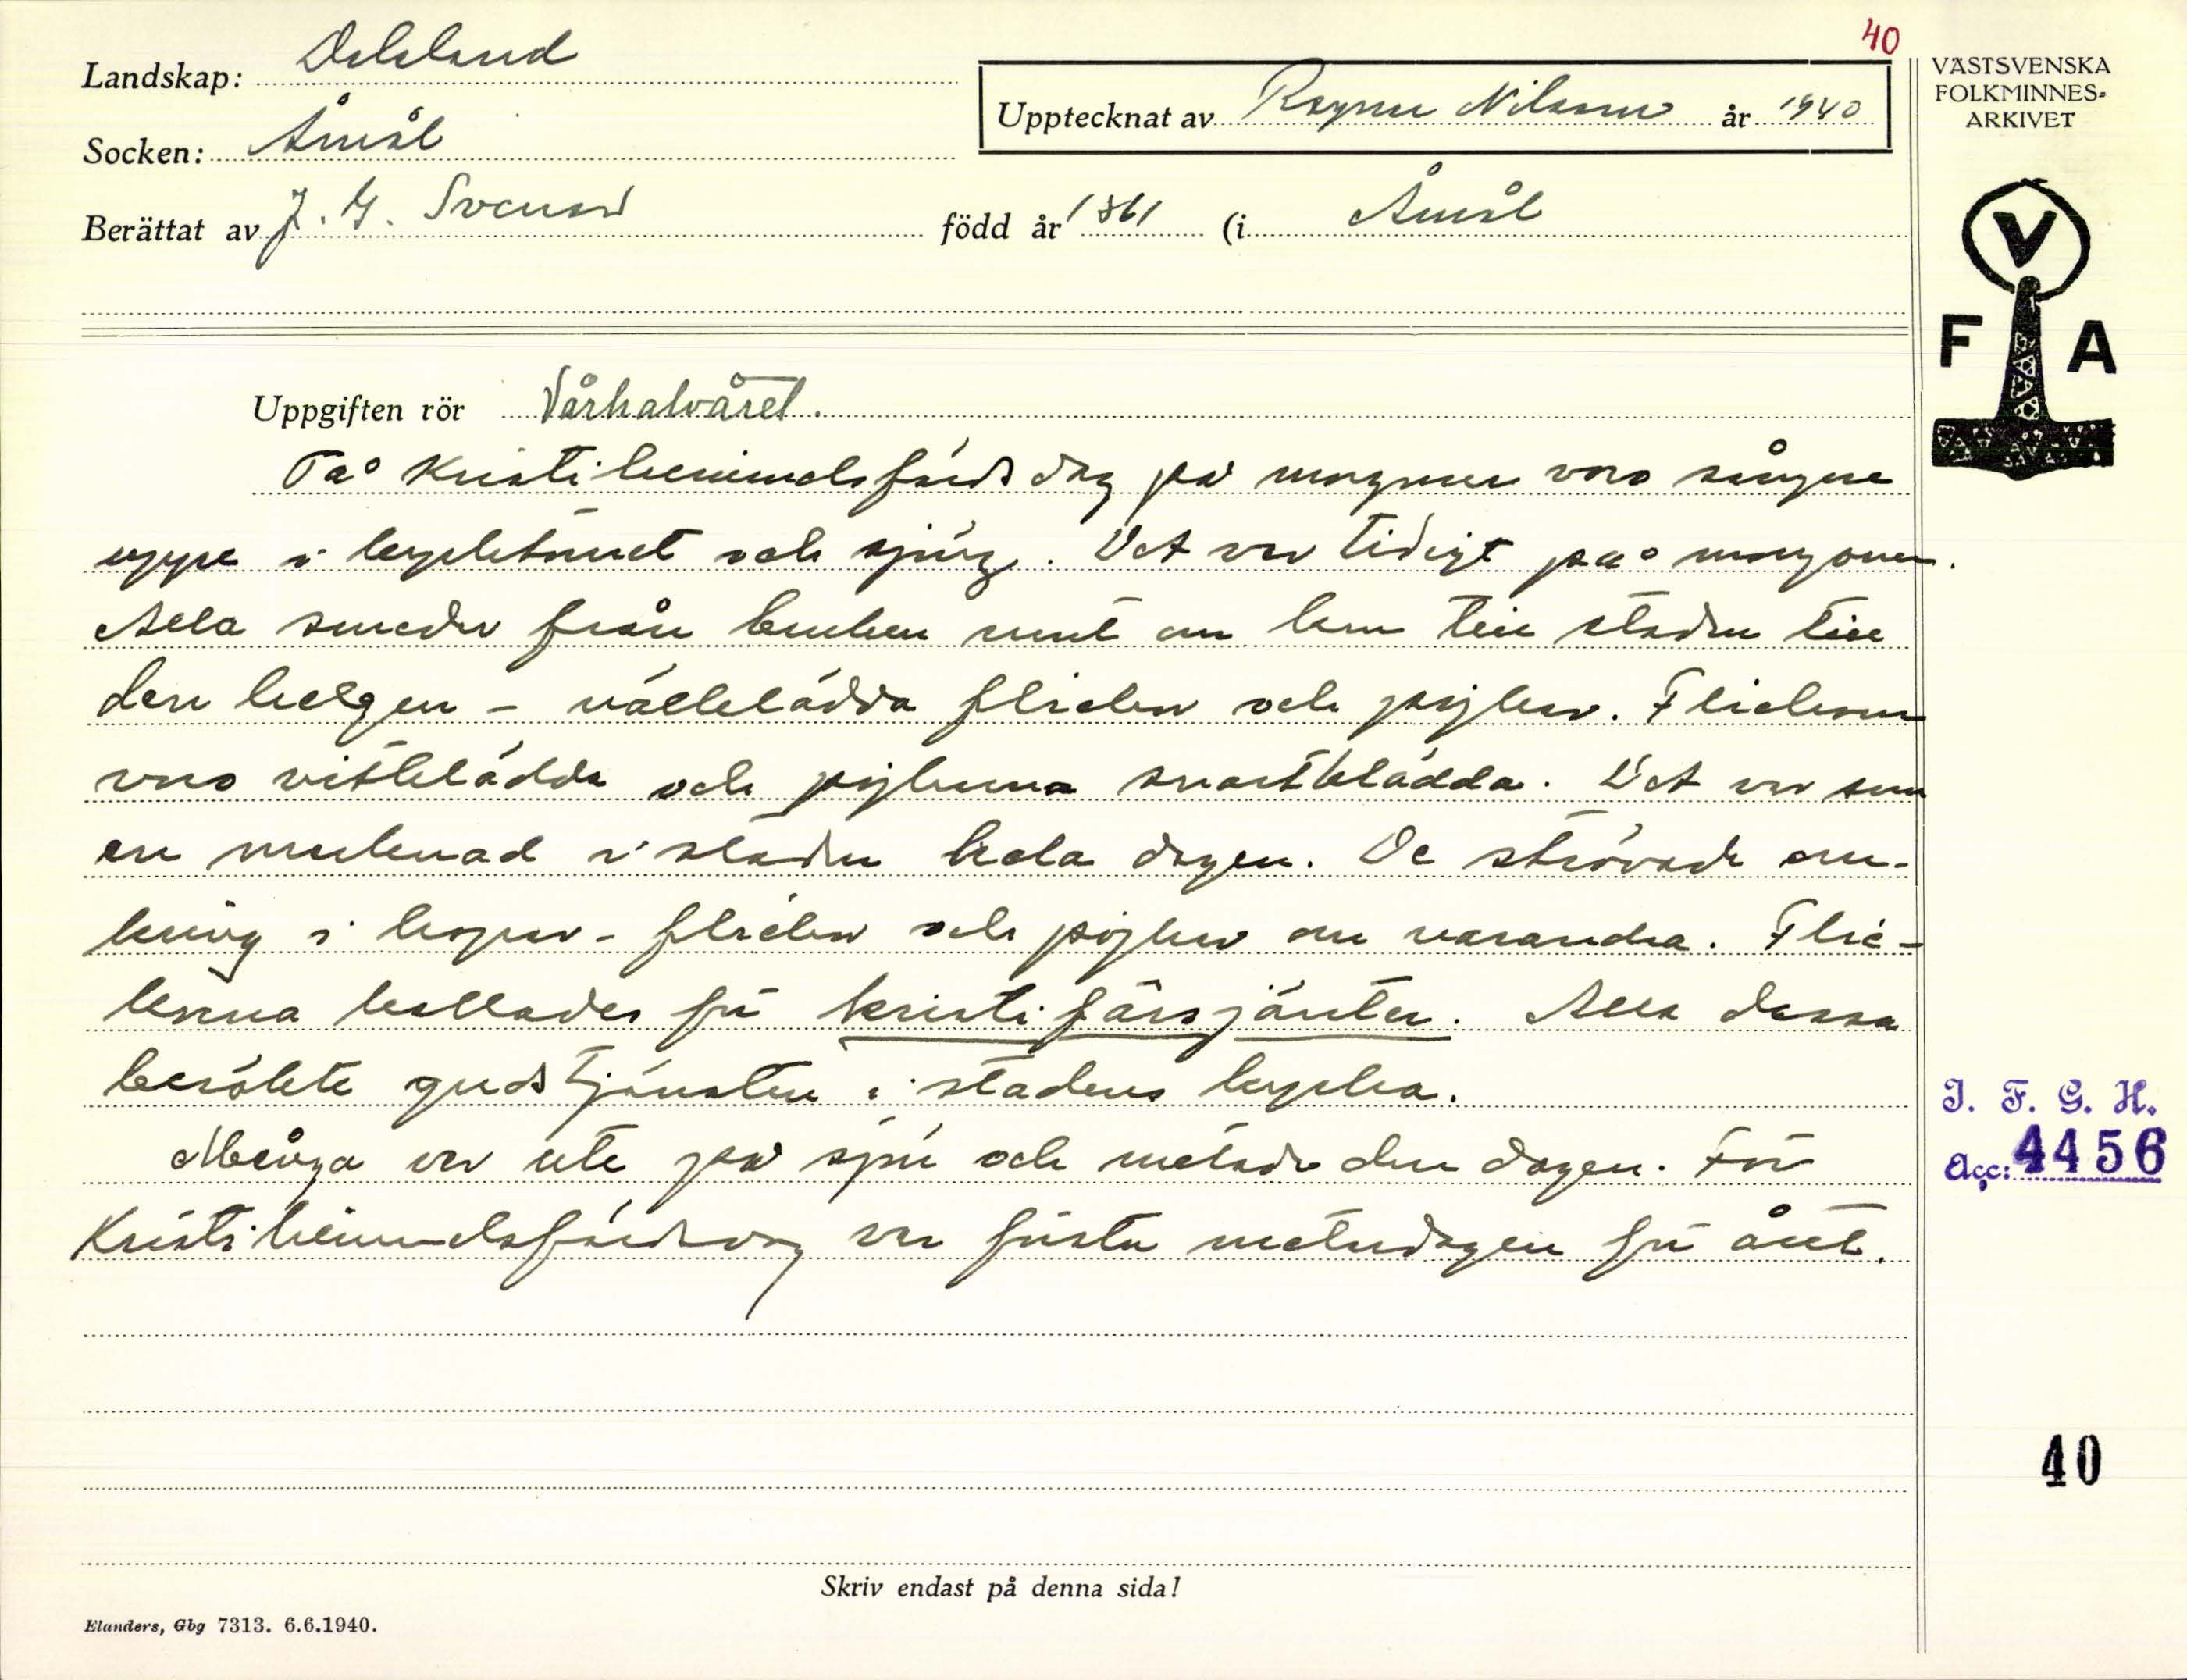 40
Landskap: Dalsland
Upptecknat av Ragnar Nilsson år 1940
VÄSTSVENSKA
FOLKMINNES-
ARKIVET
Socken: Åmål
Berättat av J. G. Svenson född år 1861 (i Åmål
V
F A
Uppgiften rör Vårhalvåret.
På Kristihimmelsfärdsdag på morgonen voro sångare
uppe i kyrktornet och sjöng. Det var tidigt på morgonen.
Alla smeder från bruken runt om kom till staden till
den helgen - välklädda flickor och pojkar. Flickorna
voro vitklädda och pojkarna svartklädda. Det var som
en marknad i staden hela dagen. De strövade om-
kring i hopar - flickor och pojkar om varandra. Flic-
korna kallades för kristifärsjänter. Alla dessa
besökte gudstjänsten i stadens kyrka.
Många var ute på sjön och metade den dagen. För
Kristihimmelsfärdsdag var första metardagen för året.
I. F. G. H.
Acc: 4456
40
Skriv endast på denna sida!
Elanders, Gbg 7313. 6.6.1940.